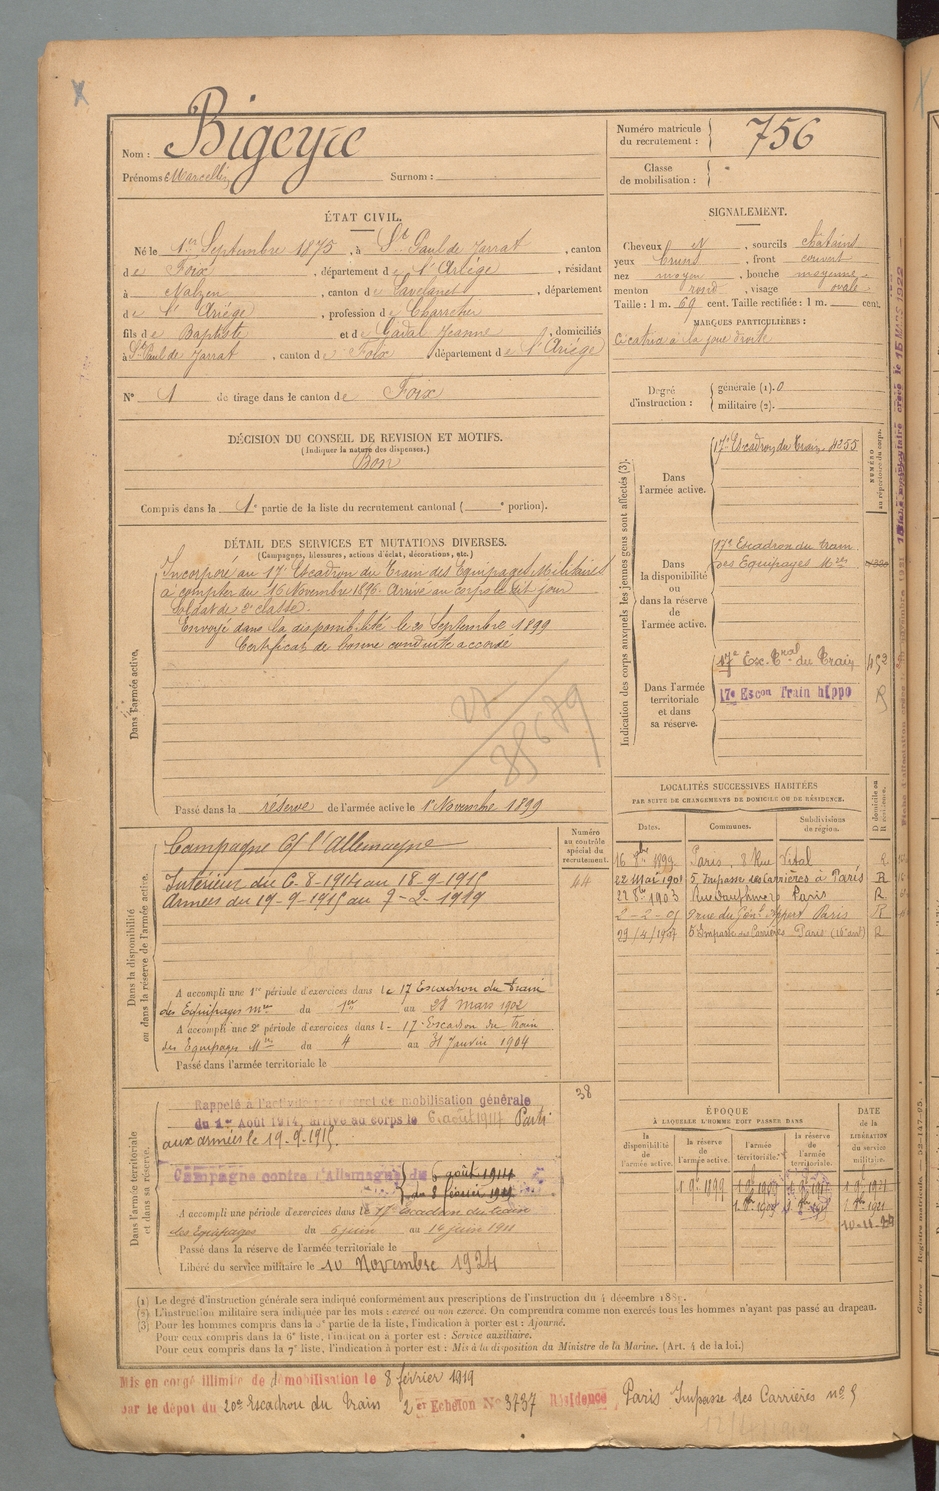 Nom : Bigeyre
Prénoms Marcellin Surnom :
Numéro matricule du recrutement : 756
Classe de mobilisation :
ÉTAT CIVIL.
Né le 1er Septembre 1875, à St Paul de Jarrat, canton
de Foix, département de l'Ariége, résidant
à Nalzen, canton de Lavelanet, département
de l'Ariége, profession de Charretier
fils de Baptiste et de Gadal Jeanne, domiciliés
à St Paul de Jarrat, canton de Foix, département de l'Ariége
N° 1 de tirage dans le canton de Foix
SIGNALEMENT.
Cheveux N, sourcils châtains
yeux bruns, front couvert
nez moyen, bouche moyenne
menton rond, visage ovale
Taille : 1 m. 69 cent. Taille rectifiée : 1 m. cent.
MARQUES PARTICULIÈRES :
Cicatrice à la joue droite
Degré d'instruction : générale (1). 0
militaire (2).
DÉCISION DU CONSEIL DE REVISION ET MOTIFS.
(Indiquer la nature des dispenses.)
Bon
Compris dans la 1e partie de la liste du recrutement cantonal ( e portion).
DÉTAIL DES SERVICES ET MUTATIONS DIVERSES.
(Campagnes, blessures, actions d'éclat, décorations, etc.)
Dans l'armée active.
Incorporé au 17e Escadron du Train des Equipages Militaires
à compter du 16 Novembre 1896. Arrivé au corps le dit jour
Soldat de 2e classe.
Envoyé dans la disponibilité le 20 Septembre 1899
Certificat de bonne conduite accordé
Passé dans la réserve de l'armée active le 1er Novembre 1899
Indication des corps auxquels les jeunes gens sont affectés (3).
NUMÉRO au répertoire du corps.
Dans l'armée active.
17e Escadron du Train. 4255
Dans la disponibilité ou dans la réserve de l'armée active.
17e Escadron du train
des Equipages Mres
Dans l'armée territoriale et dans sa réserve.
17e Esc. Tral du Train 452
17e Escon Train hippo R
Dans la disponibilité ou dans la réserve de l'armée active.
Numéro au contrôle spécial du recrutement.
44
Campagne Ct l'Allemagne
Intérieur du 6-8-1914 au 18-9-1915
Armées du 19-9-1915 au 7-2-1919
A accompli une 1re période d'exercices dans le 17 Escadron du Train
des Equipages mres du 1er au 28 Mars 1902
A accompli une 2e période d'exercices dans le 17e Escadron du Train
des Equipages Mres du 4 au 31 Janvier 1904
Passé dans l'armée territoriale le
LOCALITÉS SUCCESSIVES HABITÉES
PAR SUITE DE CHANGEMENTS DE DOMICILE OU DE RÉSIDENCE.
Dates. Communes. Subdivisions de région. D domicile ou R résidence.
16 8bre 1899 Paris, 8 Rue Vital R
22 Mai 1901 5, Impasse des Carrières à Paris R
22 8bre 1903 Rue Dauphine Paris R
2-2-05 9 rue du Génl Appert Paris R
29/4/1907 5 Impasse des Carrières Paris (16e arrt) R
Dans l'armée territoriale et dans sa réserve.
38
Rappelé à l'activité par décret de mobilisation générale
du 1er Août 1914, arrivé au corps le 6 août 1914 Parti
aux armées le 19-9-1915.
Campagne contre l'Allemagne du 6 août 1914
au 8 février 1919
A accompli une période d'exercices dans le 17e Escadron du train
des Equipages du 6 juin au 14 juin 1911
Passé dans la réserve de l'armée territoriale le
Libéré du service militaire le 10 Novembre 1924
ÉPOQUE À LAQUELLE L'HOMME DOIT PASSER DANS
DATE DE LA LIBÉRATION du service militaire.
la disponibilité de l'armée active. la réserve de l'armée active. l'armée territoriale. la réserve de l'armée territoriale.
1 9bre 1899
10-11-24
(1) Le degré d'instruction générale sera indiqué conformément aux prescriptions de l'instruction du 4 décembre 1889.
(2) L'instruction militaire sera indiquée par les mots : exercé ou non exercé. On comprendra comme non exercés tous les hommes n'ayant pas passé au drapeau.
(3) Pour les hommes compris dans la 5e partie de la liste, l'indication à porter est : Ajourné.
Pour ceux compris dans la 6e liste, l'indication à porter est : Service auxiliaire.
Pour ceux compris dans la 7e liste, l'indication à porter est : Mis à la disposition du Ministre de la Marine. (Art. 4 de la loi.)
Mis en congé illimité de démobilisation le 8 février 1919
par le dépôt du 20e Escadron du Train 2e Echelon N° 3737 Résidence Paris Impasse des Carrières n° 5